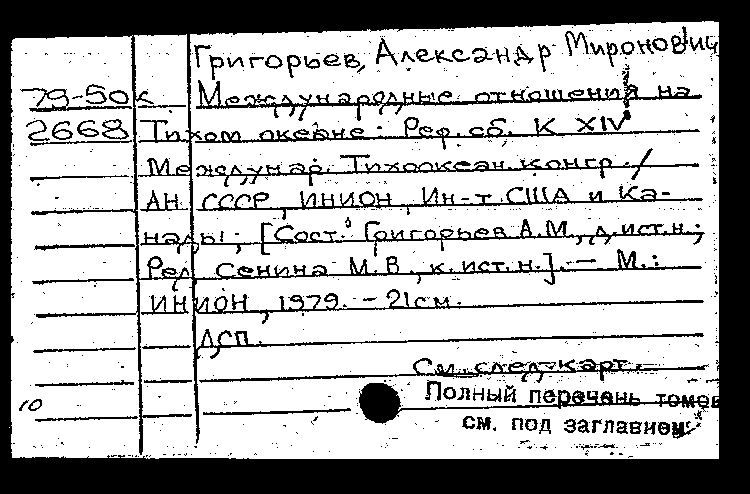 Григорьев, Александр Миронович
79-50к Международные отношения на
2668 Тихом океане: Реф. сб. К XIV
Междунар. Тихоокеан. конгр. /
АН СССР, ИНИОН, Ин-т США и Ка-
нады; [Сост.: Григорьев А.М., д.ист.н.;
Ред. Сенина М.В., к.ист.н.]. — М.:
ИНИОН, 1979. - 21см.
ДСП.
См. след. карт.
10 Полный перечень томов
см. под заглавием